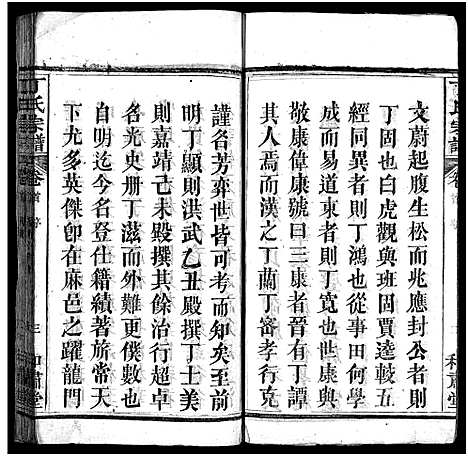 丁氏宗譜
文蔚起腹生松而兆應封公者則
丁固也白虎觀與班固賈逵較五
經同異者則丁鴻也從事田何學
成而易道東者則丁寬也世康與
敬康偉康號曰三康者晉有丁譚
其人焉而漢之丁蘭丁審孝行克
和肅堂
謹各芳弈世皆可考而知矣至前
明丁顯則洪武乙丑殿撰丁士美
則嘉靖己未殿撰其餘治行超卓
名光史册丁滋而外難更僕數也
自明迄今名登仕籍績著旂常天
下尤多英傑卽在麻邑之躍龍門
丁氏宗譜
卷首
三
和肅堂